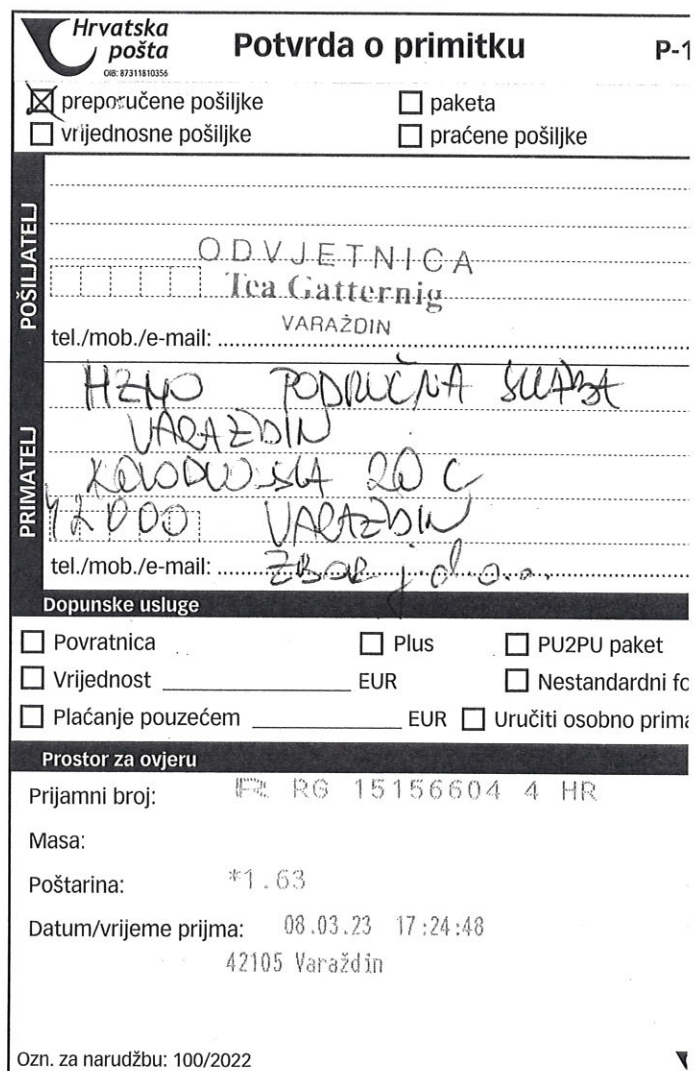 Hrvatska pošta
OIB: 87311810356
Potvrda o primitku
P-1
preporučene pošiljke
paketa
vrijednosne pošiljke
praćene pošiljke
POŠILJATELJ
ODVJETNICA
Tea Gatternig
VARAŽDIN
tel./mob./e-mail:
PRIMATELJ
HZMO PODRUČNA SLUŽBA
VARAŽDIN
KOLODVORSKA 20 C
42000 VARAŽDIN
tel./mob./e-mail: ZBOR j.d.o.o.
Dopunske usluge
Povratnica
Plus
PU2PU paket
Vrijednost EUR
Nestandardni fo
Plaćanje pouzećem EUR
Uručiti osobno prima
Prostor za ovjeru
Prijamni broj: R RG 15156604 4 HR
Masa:
Poštarina: *1.63
Datum/vrijeme prijma: 08.03.23 17:24:48
42105 Varaždin
Ozn. za narudžbu: 100/2022